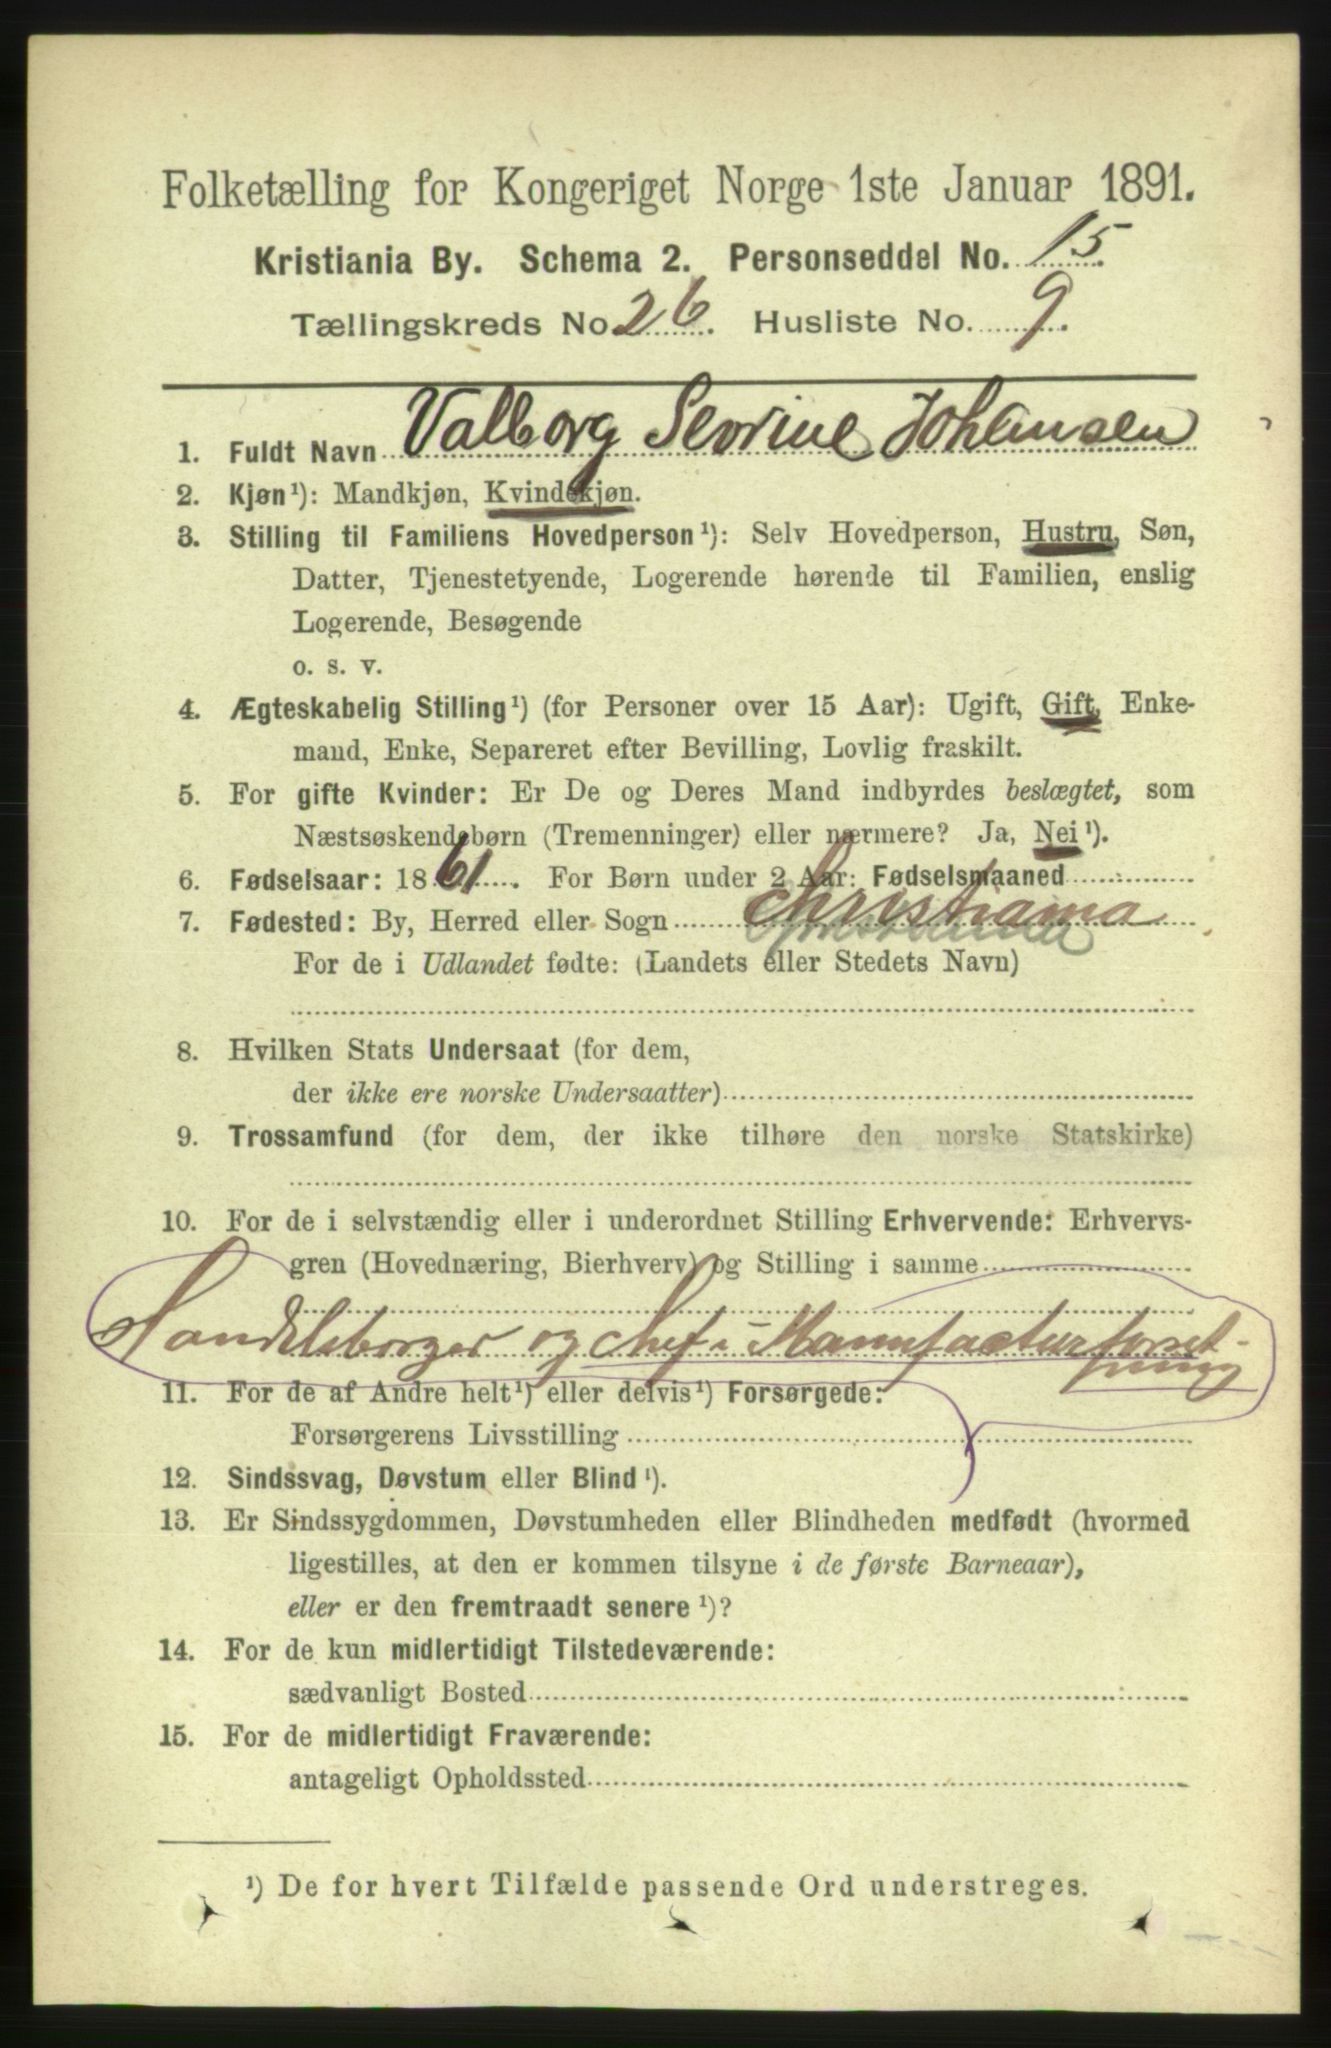 Folketælling for Kongeriget Norge 1ste Januar 1891.
Kristiania By. Schema 2. Personseddel No. 15.
Tællingskreds No. 26. Husliste No. 9.
1. Fuldt Navn Valborg Sevrine Johansen
2. Kjøn¹): Mandkjøn, Kvindekjøn.
3. Stilling til Familiens Hovedperson¹): Selv Hovedperson, Hustru, Søn,
Datter, Tjenestetyende, Logerende hørende til Familien, enslig
Logerende, Besøgende
o. s. v.
4. Ægteskabelig Stilling¹) (for Personer over 15 Aar): Ugift, Gift, Enke-
mand, Enke, Separeret efter Bevilling, Lovlig fraskilt.
5. For gifte Kvinder: Er De og Deres Mand indbyrdes beslægtet, som
Næstsøskendebørn (Tremenninger) eller nærmere? Ja, Nei¹).
6. Fødselsaar: 1861. For Børn under 2 Aar: Fødselsmaaned
7. Fødested: By, Herred eller Sogn Christiania
For de i Udlandet fødte: (Landets eller Stedets Navn)
8. Hvilken Stats Undersaat (for dem,
der ikke ere norske Undersaatter)
9. Trossamfund (for dem, der ikke tilhøre den norske Statskirke)
10. For de i selvstændig eller i underordnet Stilling Erhvervende: Erhvervs-
gren (Hovednæring, Bierhverv) og Stilling i samme
Handelsborger og Chef i Manufacturforret-
ning
11. For de af Andre helt¹) eller delvis¹) Forsørgede:
Forsørgerens Livsstilling
12. Sindssvag, Døvstum eller Blind¹).
13. Er Sindssygdommen, Døvstumheden eller Blindheden medfødt (hvormed
ligestilles, at den er kommen tilsyne i de første Barneaar),
eller er den fremtraadt senere¹)?
14. For de kun midlertidigt Tilstedeværende:
sædvanligt Bosted
15. For de midlertidigt Fraværende:
antageligt Opholdssted
¹) De for hvert Tilfælde passende Ord understreges.